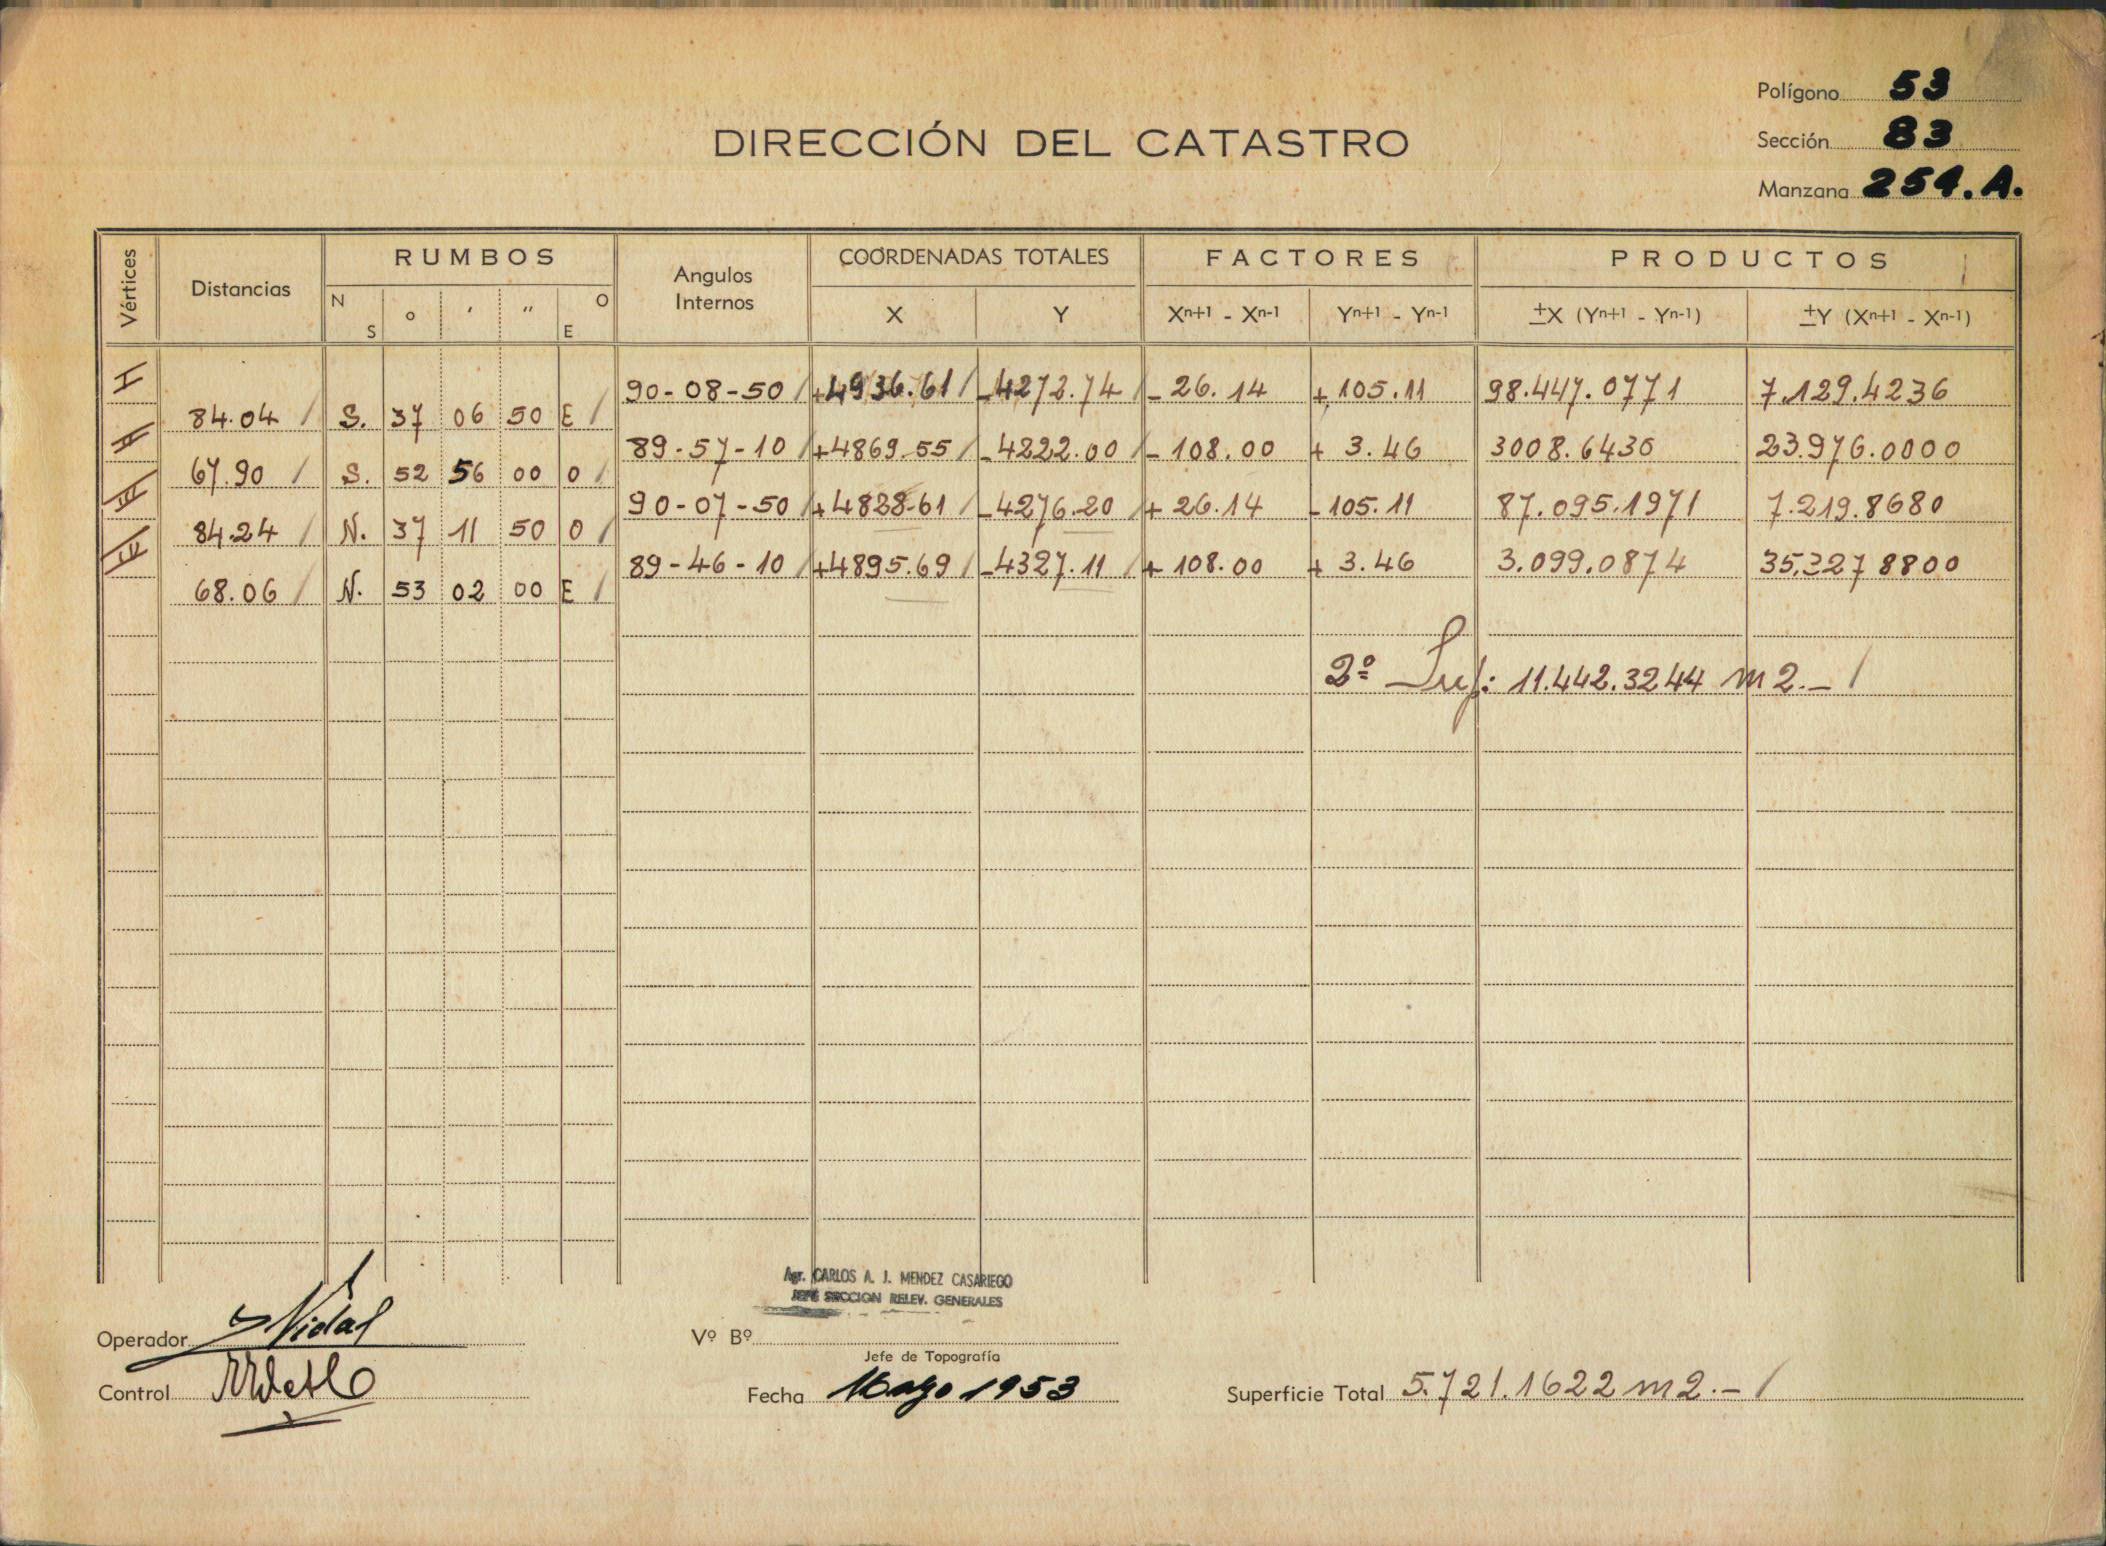 Polígono 53
DIRECCIÓN DEL CATASTRO
Sección 83
Manzana 254.A.
Vértices Distancias RUMBOS Angulos Internos COORDENADAS TOTALES FACTORES PRODUCTOS
N S ° ' " O E X Y Xn+1 - Xn-1 Yn+1 - Yn-1 ±X (Yn+1 - Yn-1) ±Y (Xn+1 - Xn-1)
90-08-50 / +4936.61 / -4272.74 / -26.14 +105.11 98.447.0771 7.129.4236
84.04 / S. 37 06 50 E /
89-57-10 / +4869.55 / -4222.00 / -108.00 + 3.46 3008.6430 23.976.0000
67.90 / S. 52 56 00 O /
90-07-50 / +4828.61 / -4276.20 / + 26.14 -105.11 87.095.1971 7.219.8680
84.24 / N. 37 11 50 O /
89-46-10 / +4895.69 / -4327.11 / + 108.00 + 3.46 3.099.0874 35.327 8800
68.06 / N. 53 02 00 E /
2º Sup: 11.442.3244 m2.- /
Agr. CARLOS A. J. MENDEZ CASARIEGO
JEFE SECCION RELEV. GENERALES
Operador Vidal
Vº Bº
Jefe de Topografía
Control
Fecha Mayo 1953
Superficie Total 5.721.1622 m2.- /